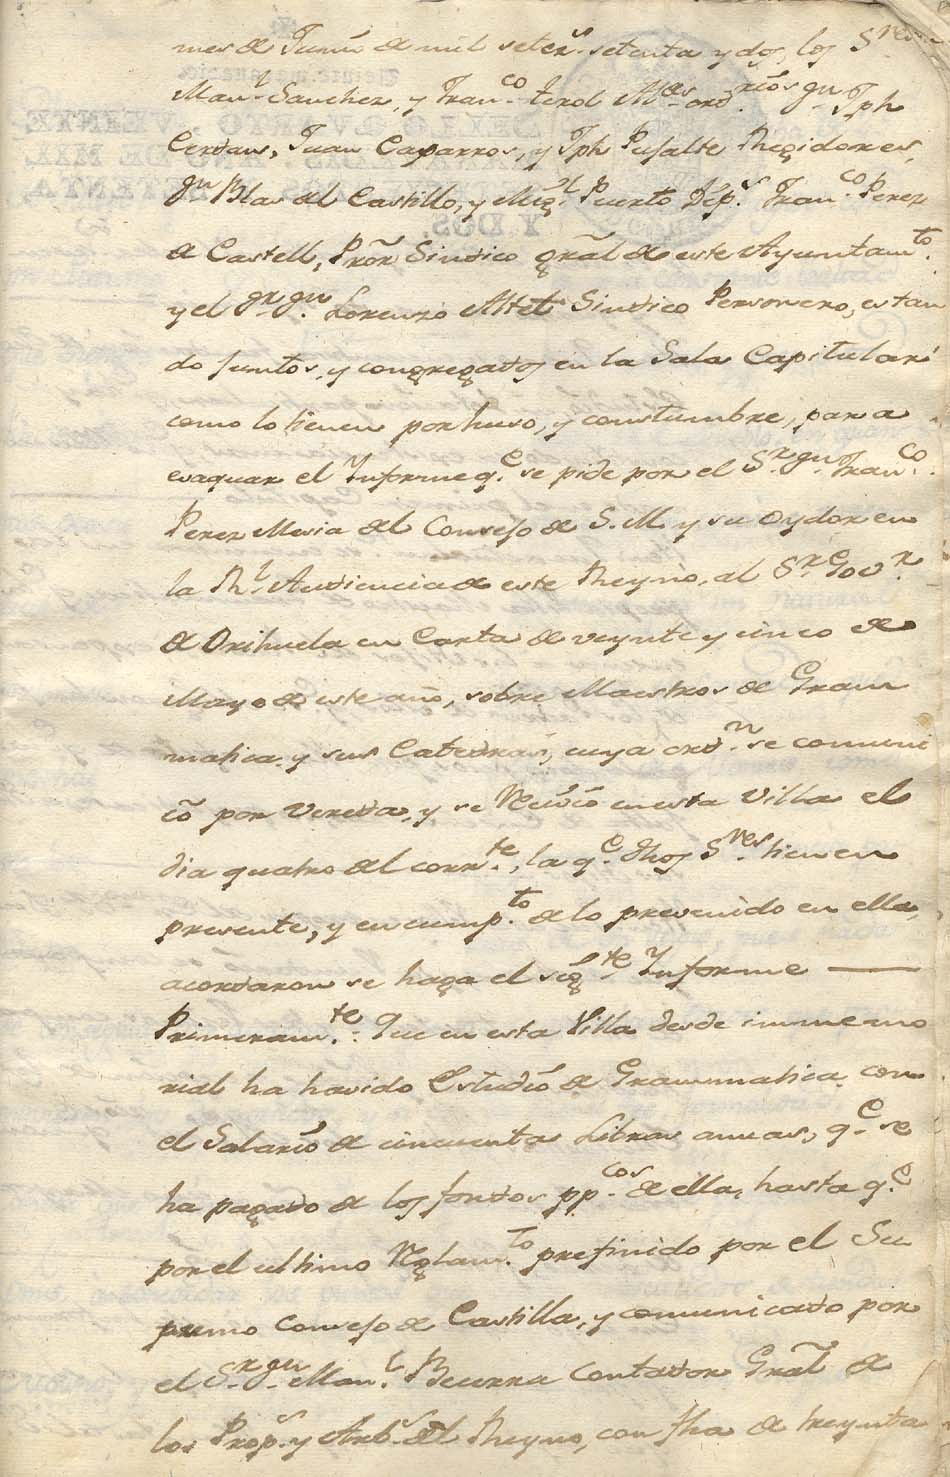 mes de Junio de mil setes. setenta y dos, los Sres.
Manl. Sanchez, y Franco. terol Alces. ordrios. gn. Jph
Cerdan, Juan Caparros, y Jph Pujalte Regidores,
gn. Blas del Castillo, y Migl. Puerto Dips. Franco. Perez
de Castell, Pror Sindico gral de este Ayuntamto.
y el gn. Lorenzo Altet Sindico Personero, estan
do juntos, y congregados en la Sala Capitular
como lo tienen por huso, y constumbre, para
evaquar el Informe qe. se pide por el Sr. gn. Franco.
Perez Mesia del Consejo de S. M. y su Oydor en
la Rl. Audiencia de este Reyno, al Sr. Govr.
de Orihuela en Carta de veynte y cinco de
Mayo de este año, sobre Maestros de Gram
matica y sus Catedras, cuya ordn. se comuni
có por Vereda, y se Recivió en esta Villa el
dia quatro del corrte., la qe. dhos Sres. tienen
presente, y en cumpto. de lo prevenido en ella,
acordaron se haga el sigte. Informe —
Primeramte. Que en esta Villa desde immemo
rial ha havido Estudio de Grammatica con
el Salario de cincuenta Libras anuas, qe. se
ha pagado de los fondos ppcos. de ella, hasta qe.
por el ultimo Reglamto. prefinido por el Su
premo Consejo de Castilla, y comunicado por
el Sr. gn. Manl. Becerra Contador Gral de
los Props. y Arbs. del Reyno, con fha de treynta